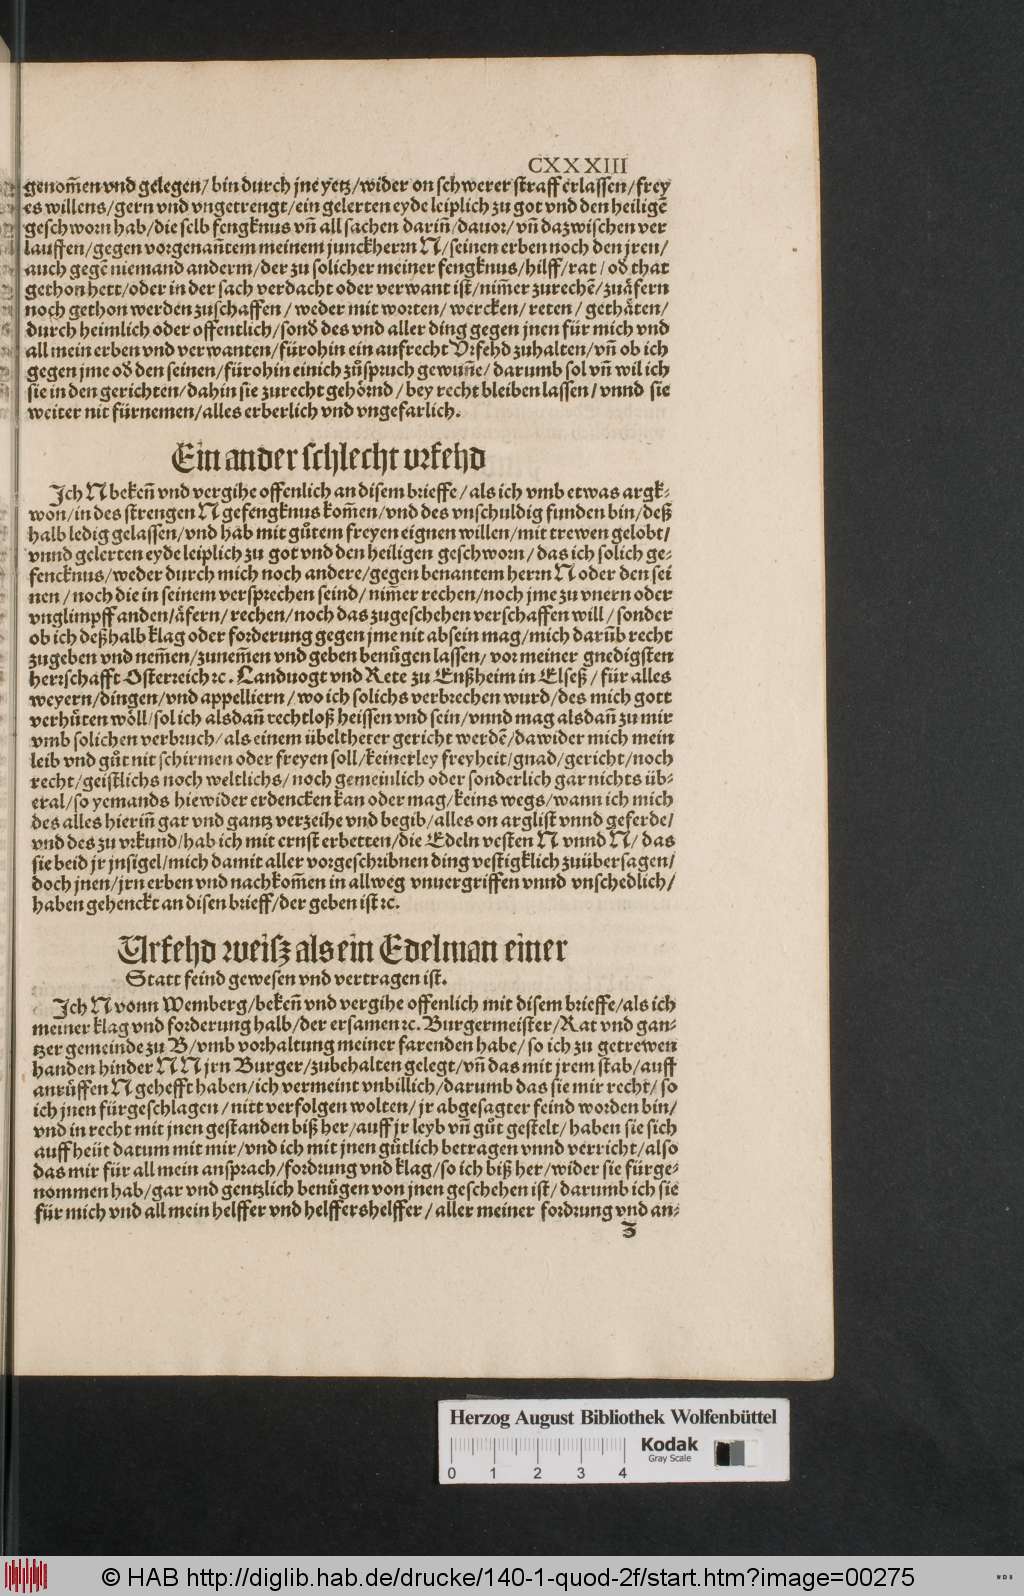 CXXXIII
genom̃en vnd gelegen/ bin durch jne yetz/wider on schwerer straff erlassen/frey
es willens/gern vnd vngetrengt/ein gelerten eyde leiplich zu got vnd den heiligẽ
geschworn hab/die selb fengknus vñ all sachen dariñ/dauor/vñ dazwischen ver
lauffen/gegen vorgenañtem meinem junckherrn N/seinen erben noch den jren/
auch gegẽ niemand anderm/der zu solicher meiner fengknus/hilff/rat/od̕ that
gethon hett/oder in der sach verdacht oder verwant ist/nim̃er zurechẽ/zuåfern
noch gethon werden zuschaffen/ weder mit worten/ wercken/ reten/ gethåten/
durch heimlich oder offentlich/sond̕ des vnd aller ding gegen jnen für mich vnd
all mein erben vnd verwanten/fürohin ein aufrecht Vrfehd zuhalten/vñ ob ich
gegen jme od̕ den seinen/fürohin einich zůspruch gewuñe/ darumb sol vñ wil ich
sie in den gerichten/dahin sie zurecht gehörnd/bey recht bleiben lassen/ vnnd sie
weiter nit fürnemen/alles erberlich vnd vngefarlich.
Ein ander schlecht vrfehd
Ich N bekeñ vnd vergihe offenlich an disem brieffe/als ich vmb etwas argk-
won/in des strengen N gefengknus kom̃en/vnd des vnschuldig funden bin/deß
halb ledig gelassen/vnd hab mit gůtem freyen eignen willen/mit trewen gelobt/
vnnd gelerten eyde leiplich zu got vnd den heiligen geschworn/das ich solich ge-
fencknus/weder durch mich noch andere/gegen benantem herrn N oder den sei
nen/noch die in seinem versprechen seind/nim̃er rechen/noch jme zu vnern oder
vnglimpff anden/åfern/rechen/noch das zugeschehen verschaffen will/sonder
ob ich deßhalb klag oder forderung gegen jme nit absein mag/mich darũb recht
zugeben vnd nem̃en/zunem̃en vnd geben benůgen lassen/ vor meiner gnedigsten
herrschafft Osterreich ꝛc. Landuogt vnd Rete zu Enßheim in Elseß/für alles
weyern/dingen/vnd appelliern/wo ich solichs verbrechen wurd/des mich gott
verhůten wöll/sol ich alsdañ rechtloß heissen vnd sein/vnnd mag alsdañ zu mir
vmb solichen verbruch/als einem übeltheter gericht werdẽ/dawider mich mein
leib vnd gůt nit schirmen oder freyen soll/keinerley freyheit/gnad/gericht/noch
recht/geistlichs noch weltlichs/noch gemeinlich oder sonderlich gar nichts üb-
eral/so yemands hiewider erdencken kan oder mag/keins wegs/wann ich mich
des alles hieriñ gar vnd gantz verzeihe vnd begib/alles on arglist vnnd geferde/
vnd des zu vrkund/hab ich mit ernst erbetten/die Edeln vesten N vnnd N/ das
sie beid jr jnsigel/mich damit aller vorgeschribnen ding vestigklich zuübersagen/
doch jnen/jrn erben vnd nachkom̃en in allweg vnuergriffen vnnd vnschedlich/
haben gehenckt an disen brieff/der geben ist ꝛc.
Urfehd weisz als ein Edelman einer
Statt feind gewesen vnd vertragen ist.
Ich N vonn Wemberg/bekeñ vnd vergihe offenlich mit disem brieffe/als ich
meiner klag vnd forderung halb/der ersamen ꝛc. Burgermeister/Rat vnd gan-
tzer gemeinde zu B/vmb vorhaltung meiner farenden habe/so ich zu getrewen
handen hinder N N jrn Burger/zubehalten gelegt/vñ das mit jrem stab/auff
anrůffen N gehefft haben/ich vermeint vnbillich/darumb das sie mir recht/so
ich jnen fürgeschlagen/nitt verfolgen wolten/jr abgesagter feind worden bin/
vnd in recht mit jnen gestanden biß her/auff jr leyb vñ gůt gestelt/haben sie sich
auff heüt datum mit mir/vnd ich mit jnen gůtlich betragen vnnd verricht/also
das mir für all mein ansprach/fordrung vnd klag/so ich biß her/wider sie fürge-
nommen hab/gar vnd gentzlich benůgen von jnen geschehen ist/darumb ich sie
für mich vnd all mein helffer vnd helffershelffer/aller meiner fordrung vnd an-
Z
Herzog August Bibliothek Wolfenbüttel
0 1 2 3 4
Kodak
Gray Scale
© HAB http://diglib.hab.de/drucke/140-1-quod-2f/start.htm?image=00275